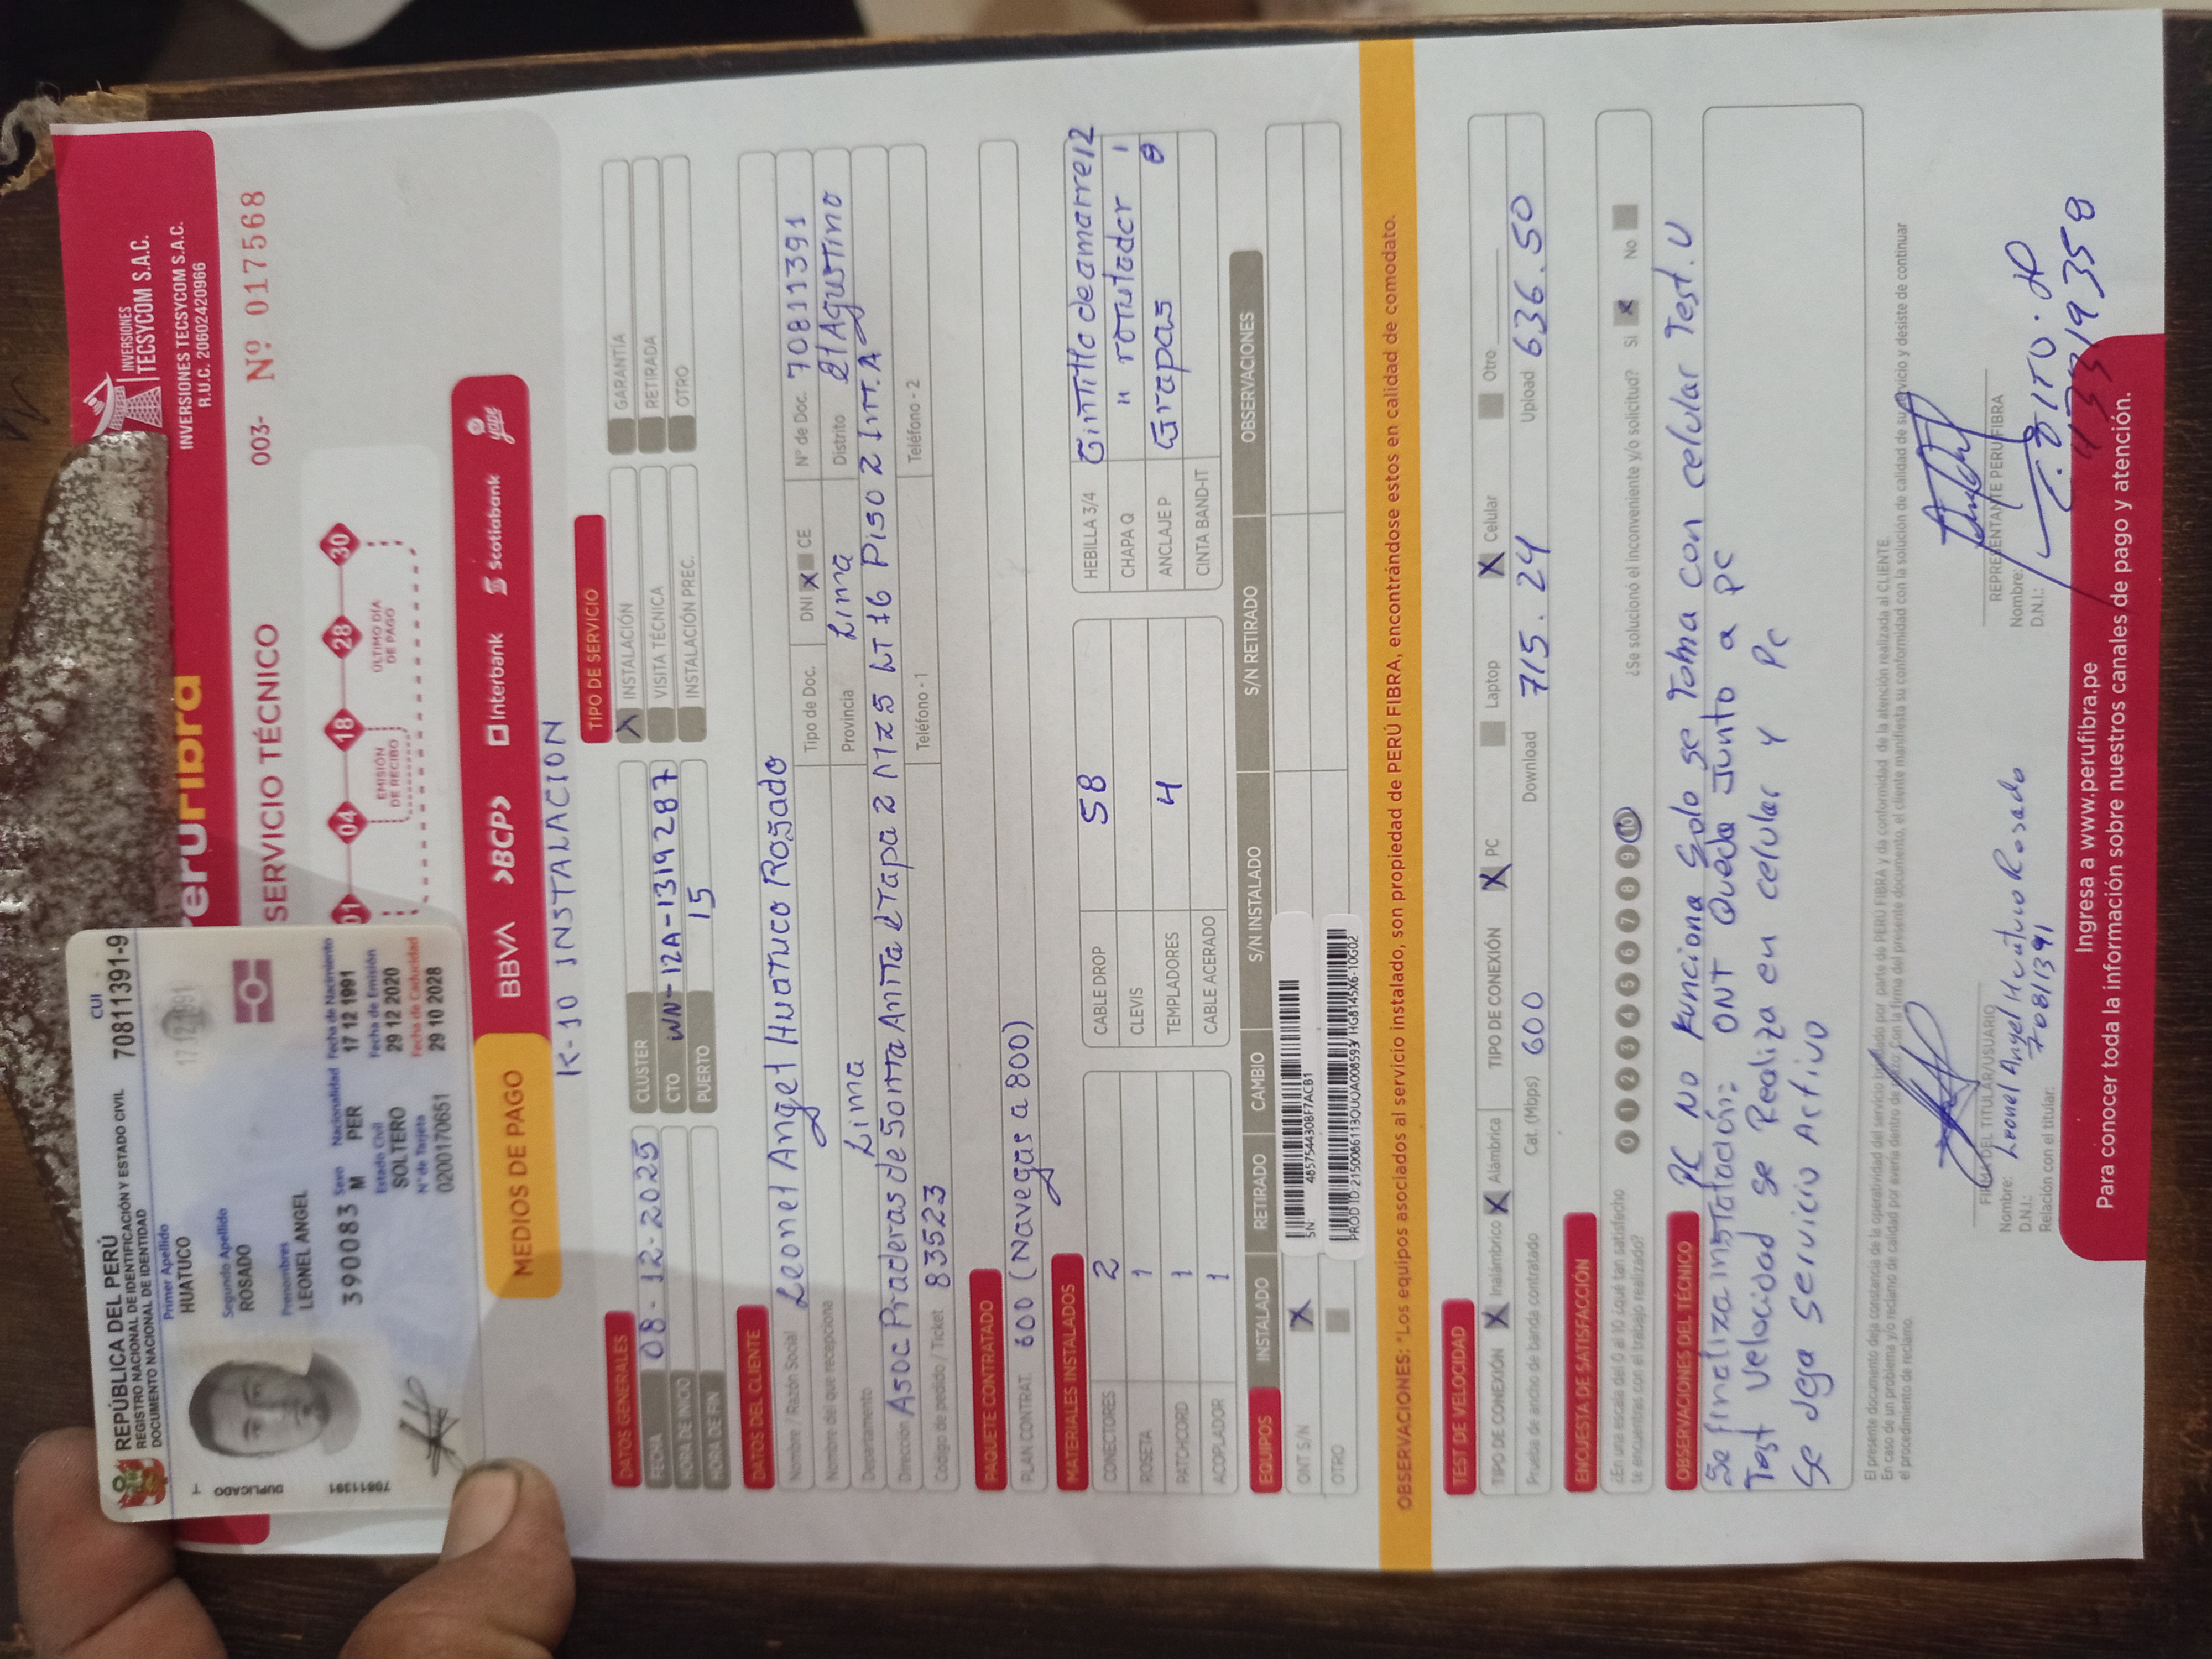 REPÚBLICA DEL PERÚ
REGISTRO NACIONAL DE IDENTIFICACIÓN Y ESTADO CIVIL
DOCUMENTO NACIONAL DE IDENTIDAD
CUI 70811391-9
Primer Apellido
HUATUCO
Segundo Apellido
ROSADO
Prenombres
LEONEL ANGEL
17 12 1991
3900083
Sexo Nacionalidad Fecha de Nacimiento
M PER 17 12 1991
Estado Civil Fecha de Emisión
SOLTERO 29 12 2020
N° de Tarjeta Fecha de Caducidad
0200170651 29 10 2028
DUPLICADO
70811391
INVERSIONES
TECSYCOM S.A.C.
INVERSIONES TECSYCOM S.A.C.
R.U.C. 20602420966
SERVICIO TÉCNICO
003- Nº 017568
01 04 18 28 30
EMISIÓN DE RECIBO
ÚLTIMO DÍA DE PAGO
MEDIOS DE PAGO BBVA >BCP> Interbank scotiabank yape
K-10 INSTALACION
DATOS GENERALES
TIPO DE SERVICIO
FECHA 08-12-2025 CLUSTER X INSTALACIÓN GARANTÍA
HORA DE INICIO CTO WN-12A-1319287 VISITA TÉCNICA RETIRADA
HORA DE FIN PUERTO 15 INSTALACIÓN PREC. OTRO
DATOS DEL CLIENTE
Nombre / Razón Social Leonel Angel Huatuco Rosado
Nombre del que recepciona Tipo de Doc. DNI X CE N° de Doc. 70811391
Departamento Lima Provincia Lima Distrito El Agustino
Dirección Asoc Praderas de Santa Anita Etapa 2 Mz 5 LT 16 Piso 2 Int. A
Código de pedido / Ticket 83523 Teléfono - 1 Teléfono - 2
PAQUETE CONTRATADO
PLAN CONTRAT. 600 (Navegas a 800)
MATERIALES INSTALADOS
CONECTORES 2 CABLE DROP 58 HEBILLA 3/4 Cintillo de amarre 12
ROSETA 1 CLEVIS CHAPA Q " rotulador 1
PATCHCORD 1 TEMPLADORES 4 ANCLAJE P Grapas 8
ACOPLADOR 1 CABLE ACERADO CINTA BAND-IT
EQUIPOS INSTALADO RETIRADO CAMBIO S/N INSTALADO S/N RETIRADO OBSERVACIONES
ONT S/N X SN: 485754430BF7ACB1
OTRO PROD ID 2150086113QUQA008593/HG8145X6-10G02
OBSERVACIONES: "Los equipos asociados al servicio instalado, son propiedad de PERÚ FIBRA, encontrándose estos en calidad de comodato.
TEST DE VELOCIDAD
TIPO DE CONEXIÓN X Inalámbrico X Alámbrica TIPO DE CONEXIÓN X PC Laptop X Celular Otro
Prueba de ancho de banda contratado Cat. (Mbps) 600 Download 715.24 Upload 636.50
ENCUESTA DE SATISFACCIÓN
¿En una escala del 0 al 10 ¿qué tan satisfecho
te encuentras con el trabajo realizado? 0 1 2 3 4 5 6 7 8 9 10 ¿Se solucionó el inconveniente y/o solicitud? Si X No
OBSERVACIONES DEL TÉCNICO PC No funciona Solo se Toma con celular Test.V
Se finaliza instalación: ONT Queda Junto a PC
Test velocidad se Realiza en celular y Pc
Se deja servicio Activo
El presente documento deja constancia de la operatividad del servicio brindado por parte de PERÚ FIBRA y da conformidad de la atención realizada al CLIENTE.
En caso de un problema y/o reclamo de calidad por avería dentro de plazo: Con la firma del presente documento, el cliente manifiesta su conformidad con la solución de calidad de su servicio y desiste de continuar
el procedimiento de reclamo.
FIRMA DEL TITULAR/USUARIO
Nombre: Leonel Angel Huatuco Rosado
D.N.I.: 70811391
Relación con el titular:
REPRESENTANTE PERU FIBRA
Nombre:
D.N.I.:
Ingresa a www.perufibra.pe
Para conocer toda la información sobre nuestros canales de pago y atención.